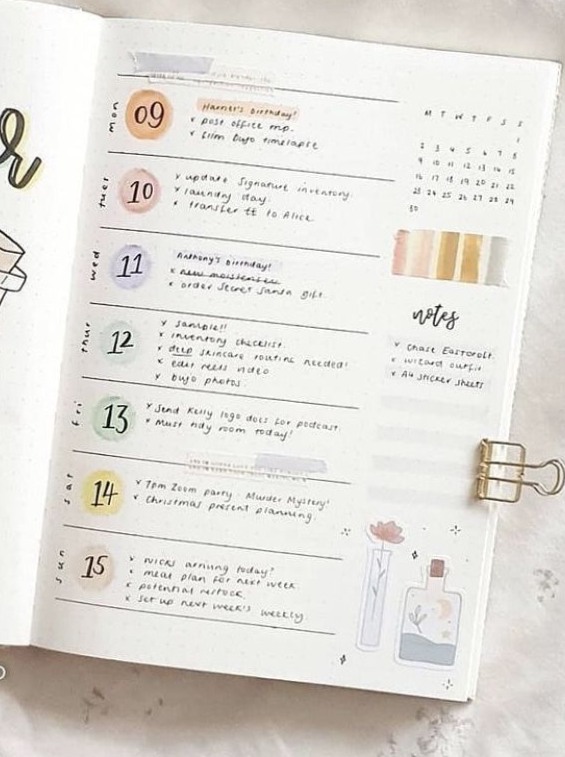 r
mon
09
Harriet's Birthday!
x post office trip.
x film bujo timelapse
tues
10
x update signature inventory.
x laundry day.
x transfer ££ to Alice
wed
11
Anthony's Birthday!
x order secret santa gift.
thur
12
x sample!!
x inventory checklist.
x deep skincare routine needed!
x edit reels video
x bujo photos.
fri
13
x Send Kelly logo docs for podcast.
x Must tidy room today!
sat
14
x 7pm Zoom party - Murder Mystery!
x Christmas present planning.
sun
15
x NICKS arriving today?
x meal plan for next week.
x potential restock.
x set up next week's weekly.
M T W T F S S
1
2 3 4 5 6 7 8
9 10 11 12 13 14 15
16 17 18 19 20 21 22
23 24 25 26 27 28 29
30
notes
x Chase Eastcroft.
x wizard outfit
x A4 sticker sheets